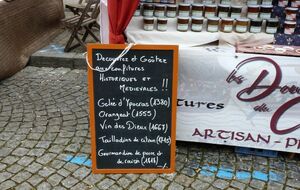 Découvrez et Goûtez
aux confitures
Historiques et
Médiévales !!
Gelée d'Ypocras (1380)
Orangeat (1555)
Vin des Dieux (1667)
Tailladins de citron
Gourmandise de poire et
de raisin
Les Dou
du C
tures
ARTISAN-PR